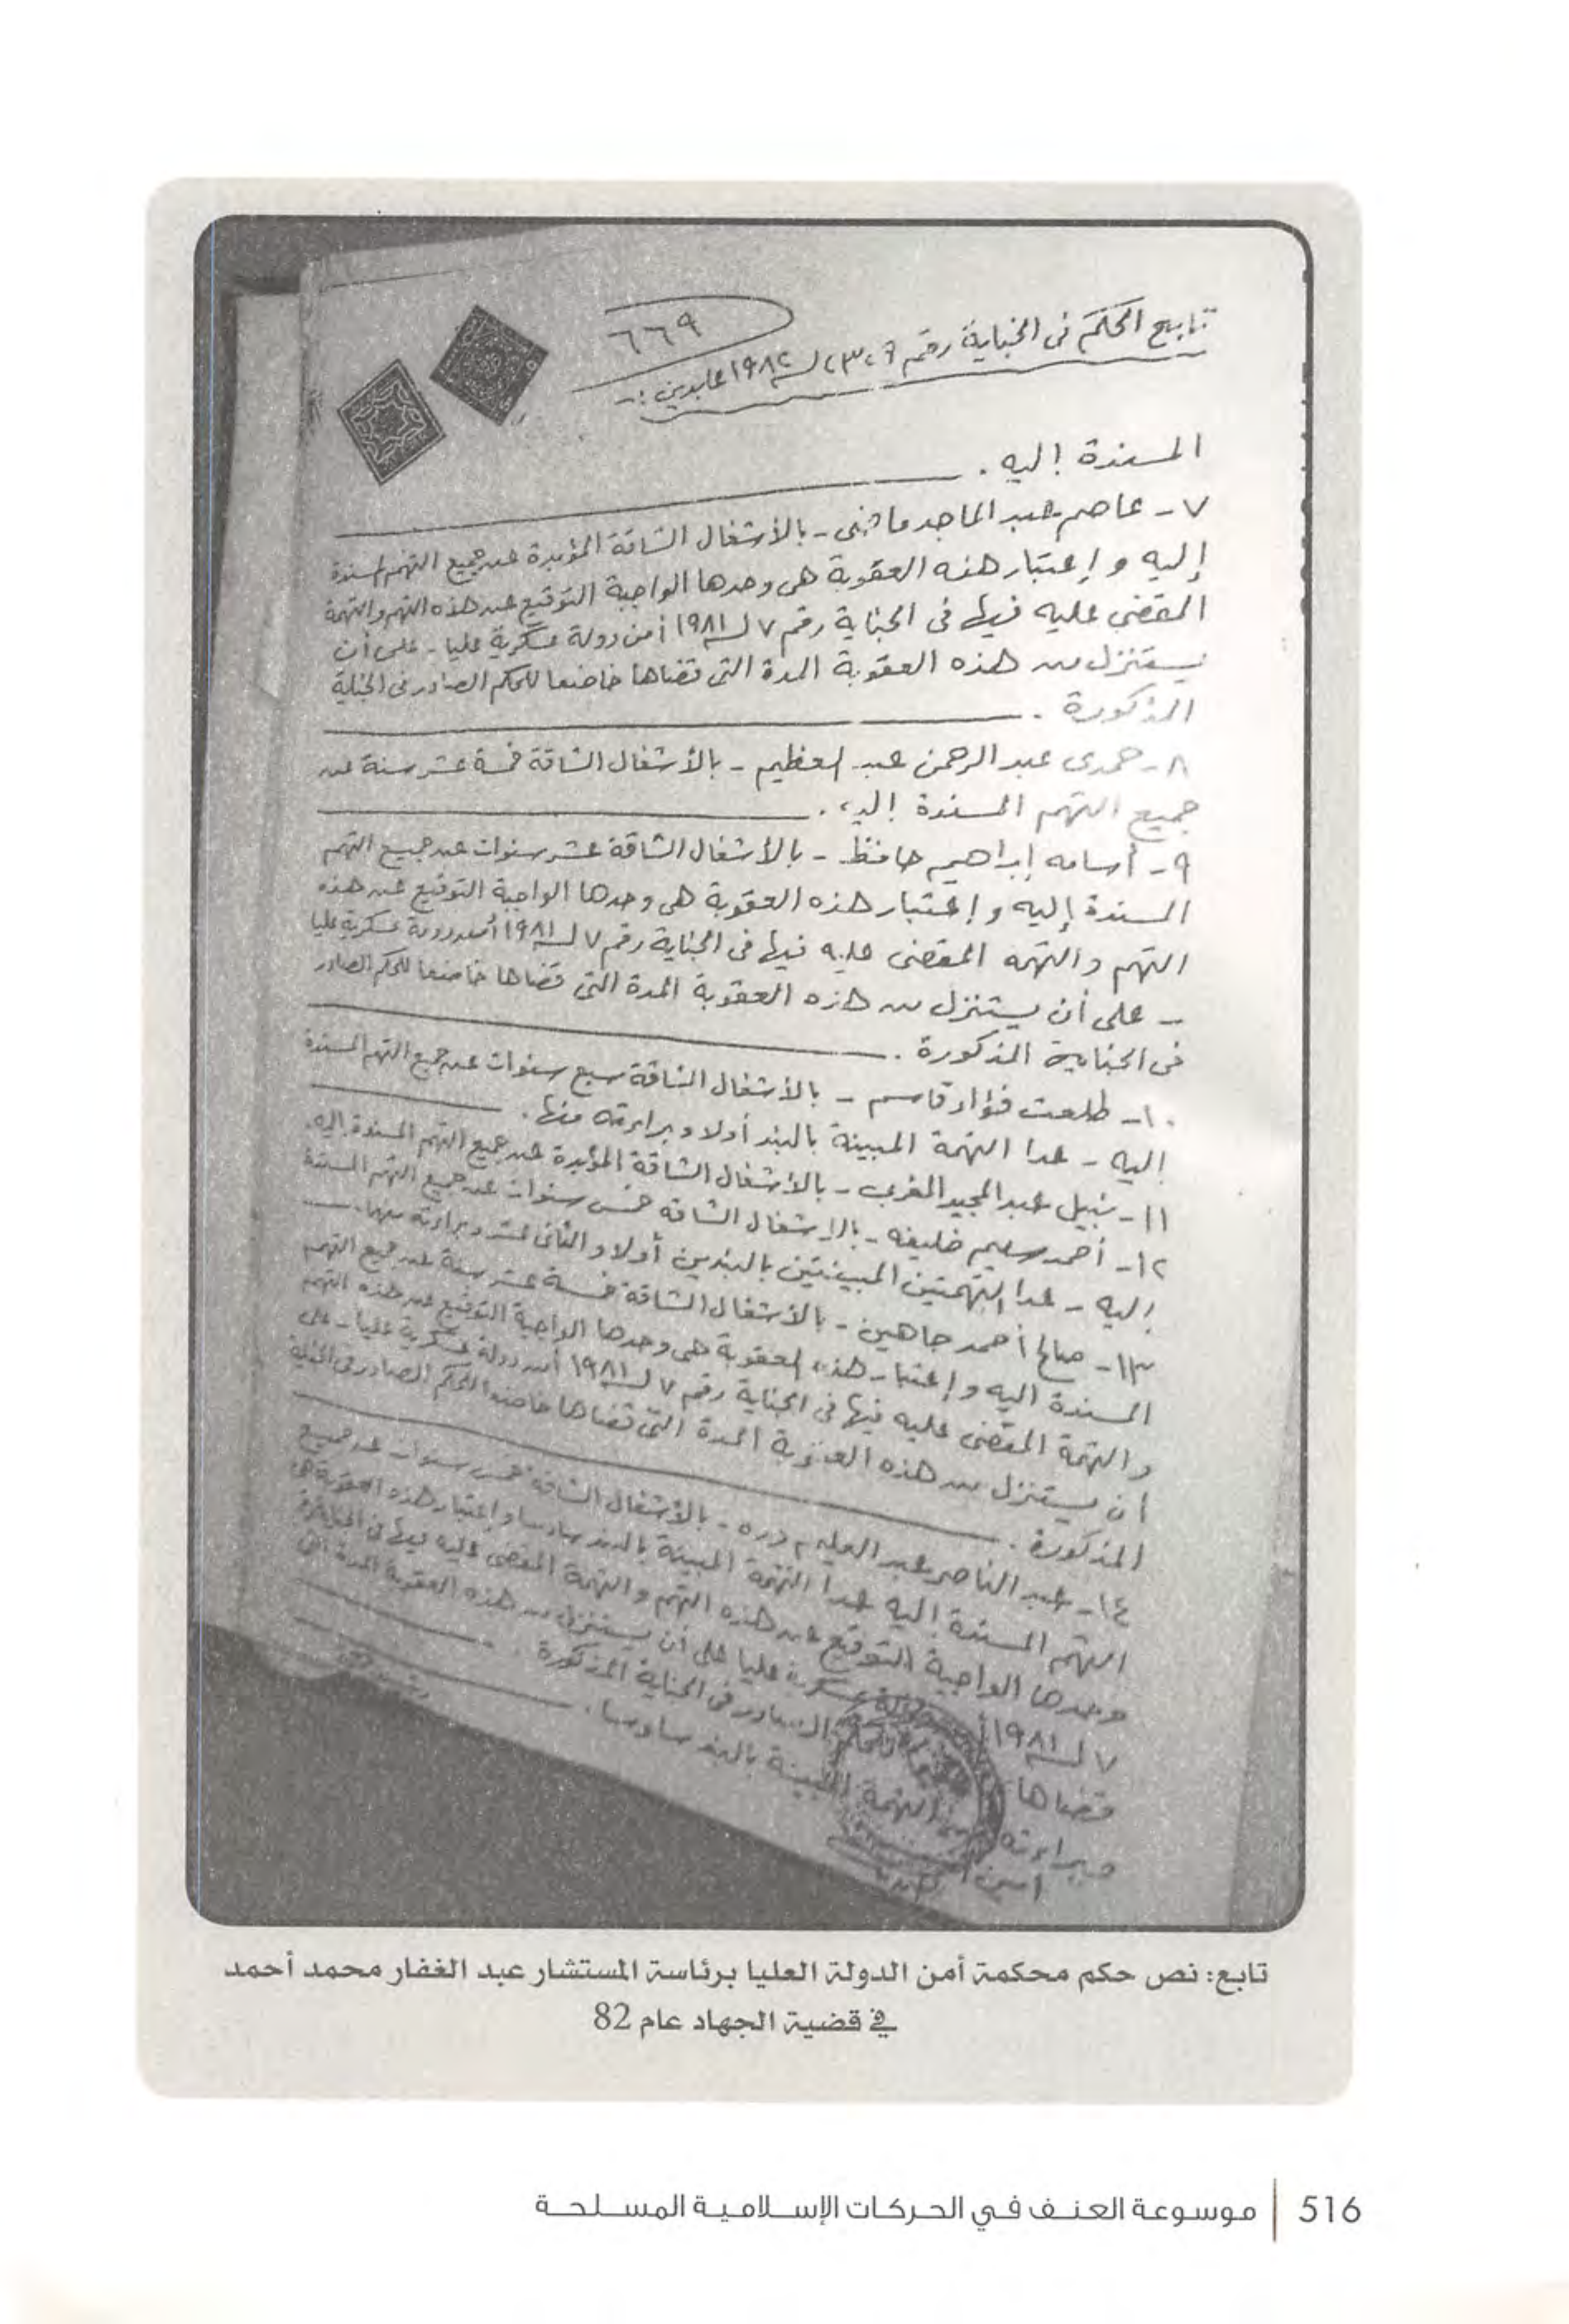 ٦٦٩
تابع الحكم فى الجناية رقم ٢٣٠٦ لسنة ١٩٨٢ عابدين :-
المسندة إليه .
٧ - عاصم عبد الماجد ماضى - بالأشغال الشاقة المؤبدة عن جميع التهم المسندة
إليه و إعتبار هذه العقوبة هى وحدها الواجبة التوقيع عن هذه التهم والتهمة
المقضى عليه فيها فى الجناية رقم ٧ لسنة ١٩٨١ أمن دولة عسكرية عليا - على أن
يستنزل من هذه العقوبة المدة التى قضاها خاضعا للحكم الصادر فى الجناية
المذكورة .
٨ - حمدى عبد الرحمن عبد العظيم - بالأشغال الشاقة خمسة عشر سنة عن
جميع التهم المسندة إليه .
٩ - أسامه إبراهيم حافظ - بالأشغال الشاقة عشر سنوات عن جميع التهم
المسندة إليه و إعتبار هذه العقوبة هى وحدها الواجبة التوقيع عن هذه
التهم والتهمه المقضى عليه فيها فى الجناية رقم ٧ لسنة ١٩٨١ أمن دولة عسكرية عليا
- على أن يستنزل من هذه العقوبة المدة التى قضاها خاضعا للحكم الصادر
فى الجناية المذكورة .
١٠ - طلعت فؤاد قاسم - بالأشغال الشاقة سبع سنوات عن جميع التهم المسندة
إليه - عدا التهمة المبينة بالبند أولا و براءته منها .
١١ - نبيل عبد المجيد المغربى - بالأشغال الشاقة المؤبدة عن جميع التهم المسندة إليه .
١٢ - أحمد سليم خليفه - بالإشغال الشاقه خمس سنوات عن جميع التهم المسندة
إليه - عدا التهمتين المبينتين بالبندين أولا و الثانى عشر و براءته منهما .
١٣ - صالح أحمد جاهين - بالأشغال الشاقة خمسة عشر سنة عن جميع التهم
المسندة اليه و إعتبار هذه العقوبة هى وحدها الواجبة التوقيع عن هذه التهم
والتهمة المقضى عليه فيها فى الجناية رقم ٧ لسنة ١٩٨١ أمن دولة عسكرية عليا - على
أن يستنزل من هذه العقوبة المدة التى قضاها خاضعا للحكم الصادر فى الجناية
المذكورة .
١٤ - عبد الناصر عبد العليم دره - بالأشغال الشاقة خمس سنوات عن جميع
التهم المسندة إليه عدا التهمة المبينة بالبند سادسا و إعتبار هذه العقوبة هى
وحدها الواجبة التوقيع عن هذه التهم و التهمة المقضى عليه فيها فى الجناية رقم
٧ لسنة ١٩٨١ أمن دولة عسكرية عليا على أن يستنزل من هذه العقوبة المدة التى
قضاها للحكم الصادر فى الجناية المذكورة .
وبراءته من التهمة المبينة بالبند سادسا .
أمين
تابع: نص حكم محكمة أمن الدولة العليا برئاسة المستشار عبد الغفار محمد أحمد
في قضية الجهاد عام 82
516 | موسوعة العنف في الحركات الإسلامية المسلحة